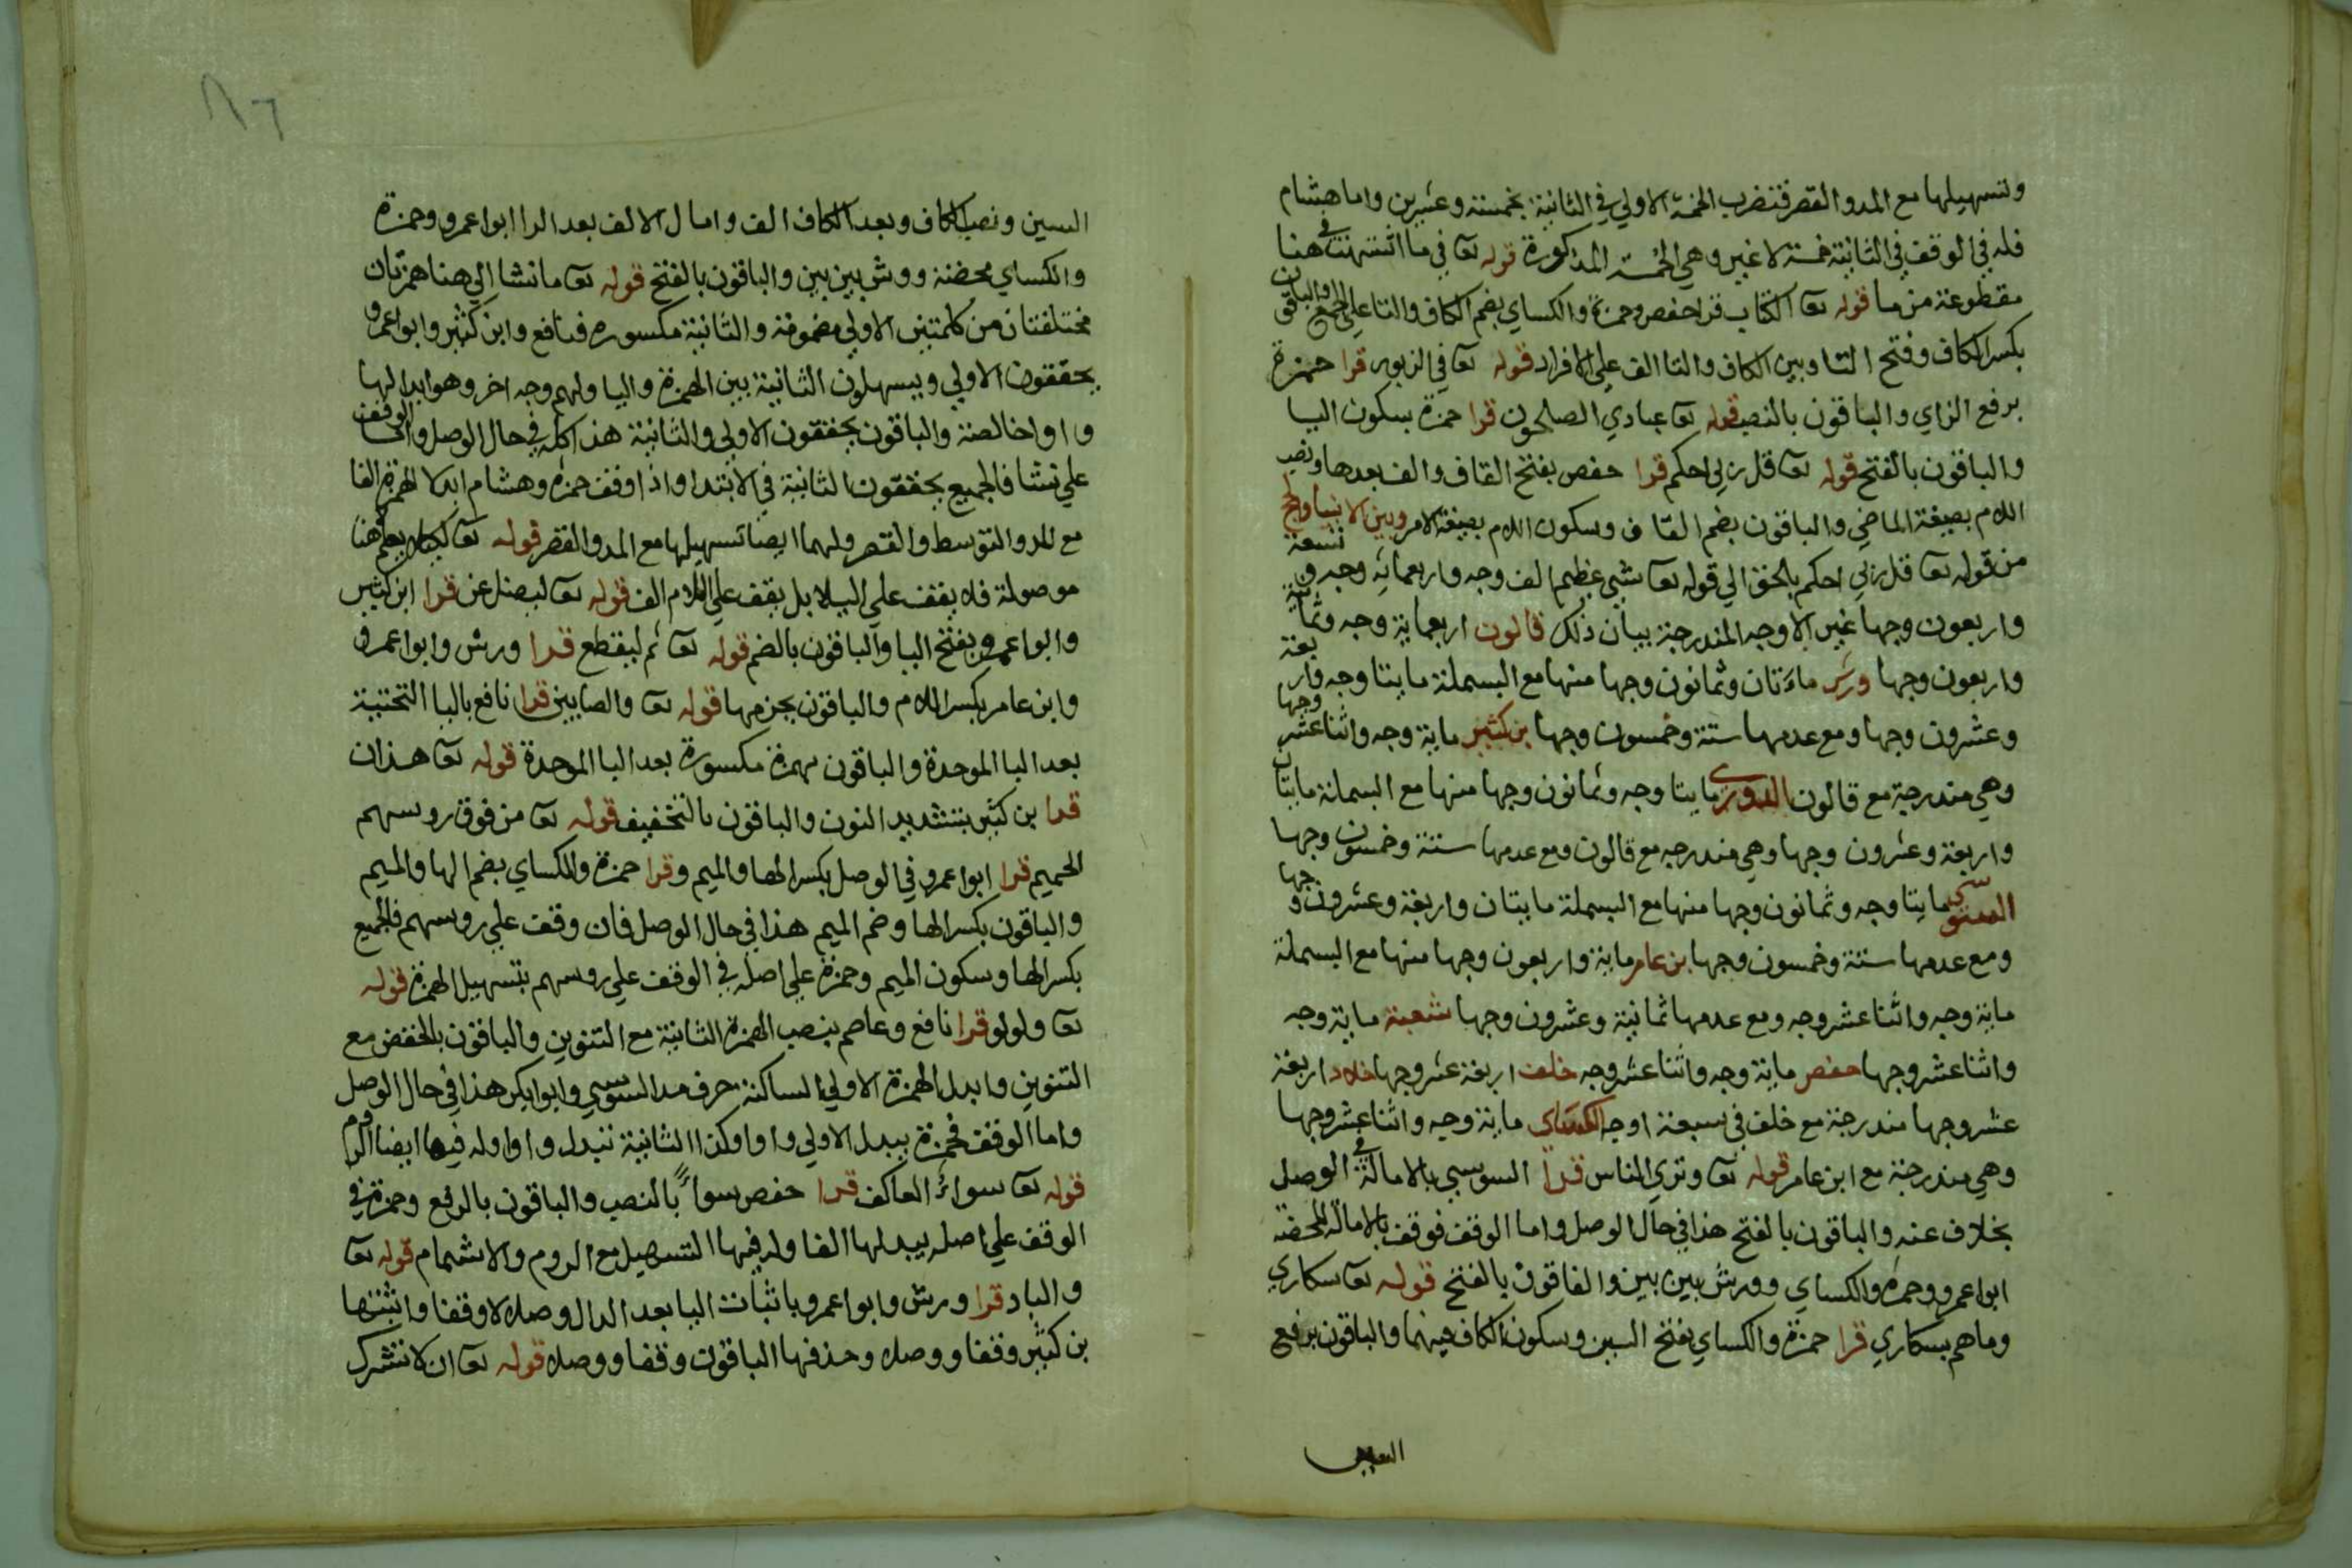 وتسهيلها مع المد والقصر فتضرب الخمسة الاولي في الثانية بخمسة وعشرين واما هشام
فله في الوقف في الثانية خمسة لا غير وهي الخمسة المذكورة قوله تعا في ما اشتهت في هنا
مقطوعة من ما قوله تعا الكتاب قرا حفص وحمزة والكساي بضم الكاف والتا علي الجمع والباقون
بكسر الكاف وفتح التا وبين الكاف والتا الف علي الافراد قوله تعا في الزبور قرا حمزة
برفع الزاي والباقون بالنصب قوله تعا عبادي الصلحون قرا حمزة بسكون اليا
والباقون بالفتح قوله تعا قل رب احكم قرا حفص بفتح القاف والف بعدها ونصب
اللام بصيغة الماضي والباقون بضم القاف وسكون اللام بصيغة الامر وبين الانبيا والحج
من قوله تعا قل رب احكم بالحق الي قوله تعا شي عظيم الف وجه واربعماية وجه وتسعة
واربعون وجها غير الاوجه المندرجة بيان ذلك قالون اربعماية وجه وثمانية
واربعون وجها ورش ماءتان وثمانون وجها منها مع البسملة مايتا وجه واربعة
وعشرون وجها ومع عدمها ستة وخمسون وجها بن كثير ماية وجه واثنا عشر وجها
وهي مندرجة مع قالون الدوري مايتا وجه وثمانون وجها منها مع البسملة مايتان
واربعة وعشرون وجها وهي مندرجه مع قالون ومع عدمها ستة وخمسون وجها
السوسي مايتا وجه وثمانون وجها منها مع البسملة مايتان واربعة وعشرون وجها
ومع عدمها ستة وخمسون وجها بن عامر ماية واربعون وجها منها مع البسملة
ماية وجه واثنا عشر وجه ومع عدمها ثمانية وعشرون وجها شعبة ماية وجه
واثنا عشر وجها حفص ماية وجه واثنا عشر وجه خلف اربعة عشر وجها خلاد اربعة
عشر وجها مندرجة مع خلف في سبعة اوجه الكساي ماية وجه واثنا عشر وجها
وهي مندرجة مع ابن عامر قوله تعا وتري الناس قرا السوسي بالامالة في الوصل
بخلاف عنه والباقون بالفتح هذا في حال الوصل واما الوقف فوقف بالامالة المحضة
ابوا عمرو وحمزه والكساي وورش بين بين والفاقون بالفتح قوله تعا سكاري
وما هم بسكاري قرا حمزة والكساي بفتح السين وسكون الكاف فيهما والباقون برفع
السين ونصب الكاف وبعد الكاف الف وامال الالف بعد الرا ابوا عمرو وحمزة
والكساي محضة وورش بين بين والباقون بالفتح قوله تعا ما نشا الي هنا همزتان
مختلفتان من كلمتين الاولي مضمومة والثانية مكسوره فنافع وابن كثير وابوا عمرو
يحققون الاولي ويسهلون الثانية بين الهمزة واليا ولهم وجه اخر وهو ابدالها
واوا خالصة والباقون يحققون الاولي والثانية هذا كله في حال الوصل واما الوقف
علي نشا فالجميع يحققون الثانية في الابتدا واذا وقف حمزه وهشام ابدلا الهمزة الفا
مع المد والتوسط والقصر ولهما ايضا تسهيلها مع المد والقصر قوله تعا لكيلا يعلم هنا
موصولة فلا يقف علي الييلا بل يقف علي اللام الف قوله تعا ليضل عن قرا ابن كثير
وابوا عمرو بفتح اليا والباقون بالضم قوله تعا ثم ليقطع قرا ورش وابوا عمرو
وابن عامر بكسر اللام والباقون بجزمها قوله تعا والصابين قرا نافع باليا التحتية
بعد البا الموحدة والباقون بهمزة مكسورة بعد البا الموحدة قوله تعا هذان
قرا بن كثير بتشديد النون والباقون بالتخفيف قوله تعا من فوق روسهم
الحميم قرا ابوا عمرو في الوصل بكسر الها والميم وقرا حمزة والكساي بضم الها والميم
والباقون بكسر الها وضم الميم هذا في حال الوصل فان وقفت علي روسهم فالجميع
بكسر الها وسكون الميم وحمزة علي اصله في الوقف علي روسهم بتسهيل الهمزة قوله
تعا ولولو قرا نافع وعاصم بنصب الهمزة الثانية مع التنوين والباقون بالخفض مع
التنوين وابدل الهمزة الاولي الساكنة حرف مد السوسي وابوا بكر هذا في حال الوصل
واما الوقف فحمزة يبدل الاولي واوا وكذا الثانية تبدل واوا وله فيها ايضا الروم
قوله تعا سواء العاكف قرا حفص سواءً بالنصب والباقون بالرفع وحمزة في
الوقف علي اصله يبدلها الفا وله فيها التسهيل مع الروم والاشمام قوله تعا
والباد قرا ورش وابوا عمرو باثبات اليا بعد الدال وصلا لا وقفا واثبتها
بن كثير وقفا ووصلا وحذفها الباقون وقفا ووصلا قوله تعا ان لا تشرك